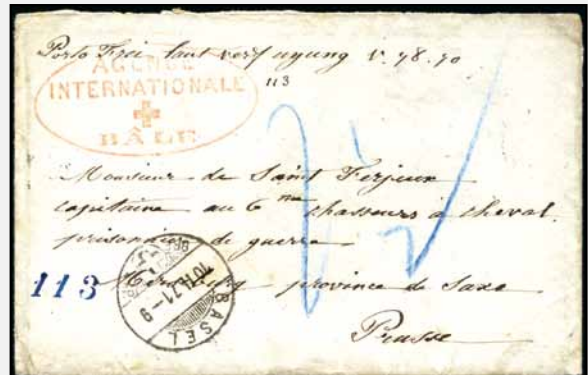 Porto Frei laut verfügung v.
AGENCE
INTERNATIONALE
BÂLE
113
Monsieur de Saint Ferjeux
capitaine au 6me chasseurs à cheval
prisonnier de guerre
113
province de Saxe
Prusse
BASEL
10.II.71-9